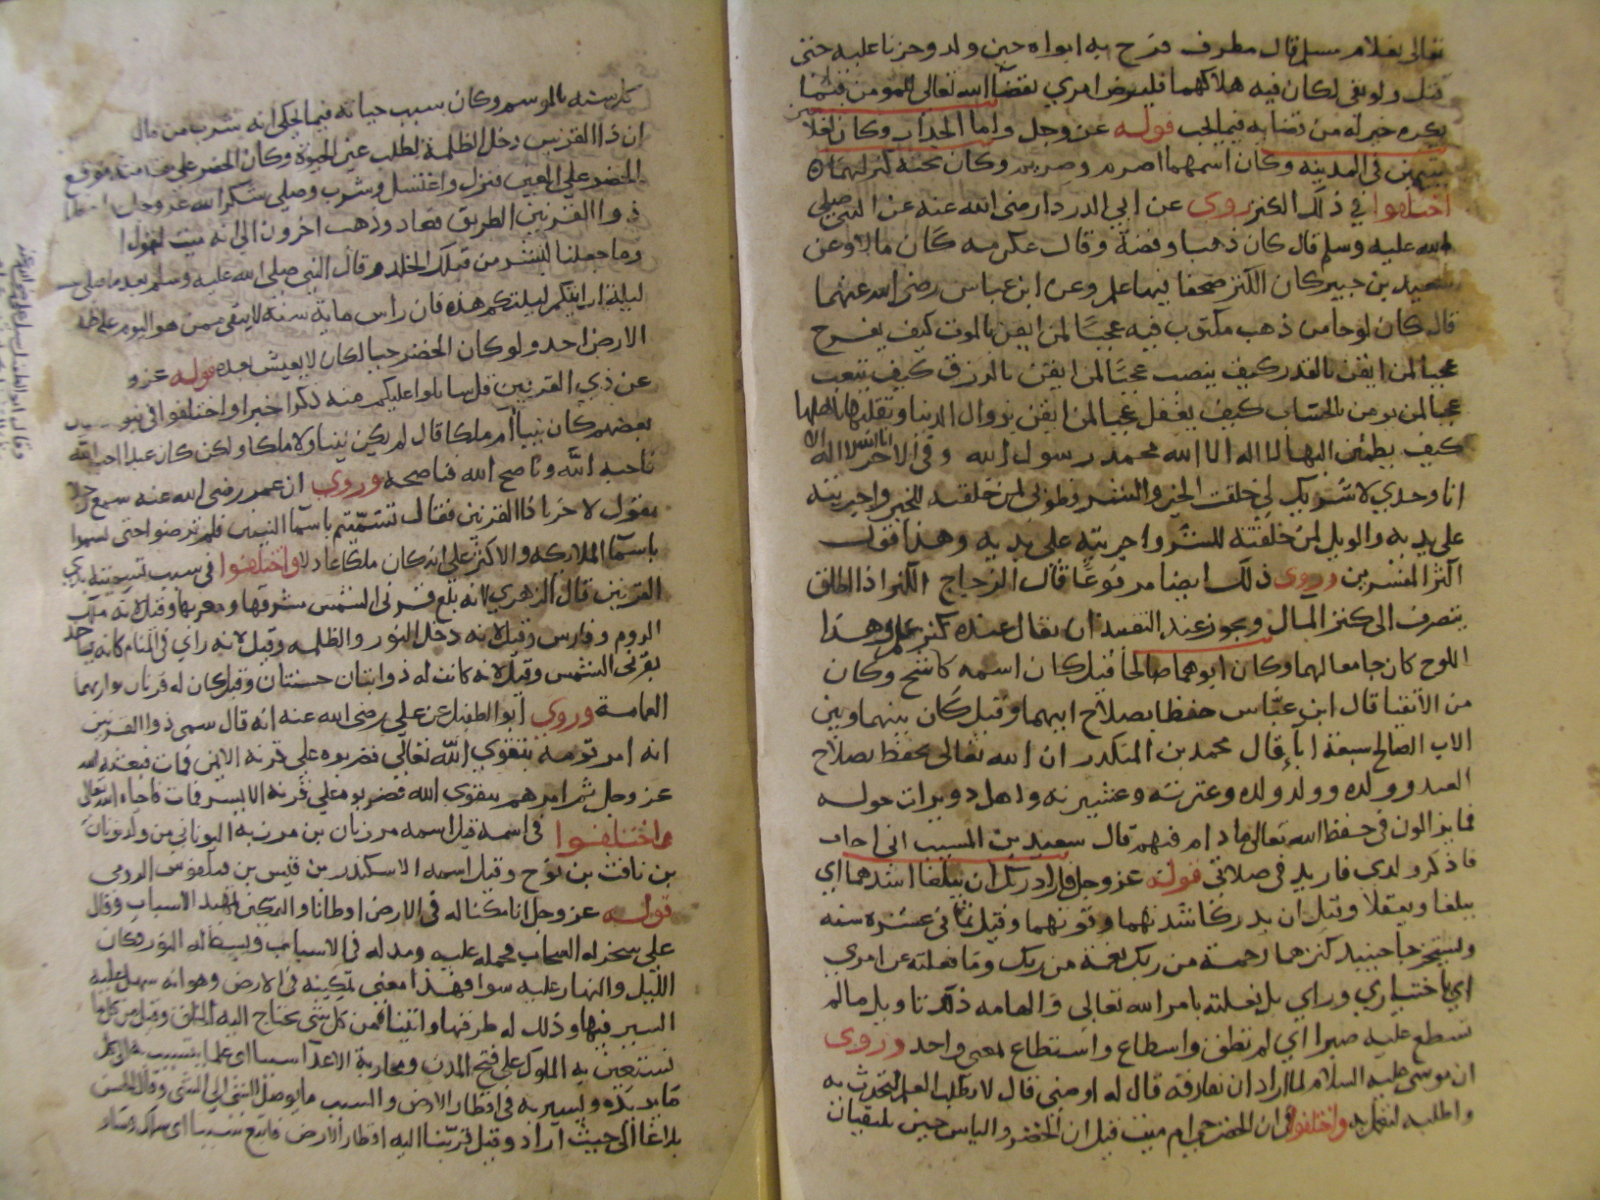 تعالى بغلام مسلم قال مطرف فرح به ابواه حين ولد وحزنا عليه حين
قتل ولو بقى لكان فيه هلاكهما فليرض امرئ بقضآء الله تعالى للمومن فيما
يكره خير له من قضايه فيما يحب قوله عز وجل واما الجدار فكان لغلامين
يتيمين فى المدينه وكان اسمهما اصرم وصريم وكان تحته كنز لهما
اختلفوا في ذلك الكنز روي عن ابي الدردا رضى الله عنه عن النبي صلى
الله عليه وسلم قال كان ذهبا وفضة وقال عكرمه كان مالا وعن
سعيد بن جبير كان الكنز صحفا فيها علم وعن ابن عباس رضى الله عنهما
قال كان لوحا من ذهب مكتوب فيه عجبا لمن ايقن بالموت كيف يفرح
عجبا لمن ايقن بالقدر كيف ينصب عجبا لمن ايقن بالرزق كيف يتعب
عجبا لمن يومن بالحساب كيف يغفل عجبا لمن ايقن بزوال الدنيا وتقلبها باهلها
كيف يطمئن اليها لا اله الا الله محمد رسول الله وفى الاخر انا الله لا اله الا
انا وحدي لا شريك لي خلقت الخير والشر فطوبى لمن خلقته للخير واجريته
على يديه والويل لمن خلقته للشر واجريته على يديه وهذا قول
اكثر المفسرين وروى ذلك ايضا مرفوعا قال الزجاج الكنز اذا اطلق
ينصرف الى كنز المال ويجوز عند التقييد ان يقال عنده كنز علم وهذا
اللوح كان جامعا لهما وكان ابوهما صالحا قيل كان اسمه كاشح وكان
من الأتقيا قال ابن عباس حفظا بصلاح ابيهما وقيل كان بينهما وبين
الاب الصالح سبعة آباء قال محمد بن المنكدر ان الله تعالى يحفظ بصلاح
العبد وولده وولد ولده وعترته وعشيرته واهل دويرات حوله
فما يزالون فى حفظ الله تعالى ما دام فيهم قال سعيد بن المسيب انى اصلى
فاذكر ولدي فازيد فى صلاتى قوله عز وجل فاراد ربك ان يبلغا اشدهما اي
يبلغا ويعقلا وقيل ان يدركا شدتهما وقوتهما وقيل ثمانى عشره سنه
ويستخرجا حينيذ كنزهما رحمة من ربك نعمة من ربك وما فعلته عن امري
اي باختياري ورايي بل فعلته بامر الله تعالى والهامه ذلك تاويل ما لم
تسطع عليه صبرا اي لم تطق واسطاع واستطاع لمعنى واحد وروى
ان موسى عليه السلام لما اراد ان يفارقه قال له اوصنى قال لا تطلب العلم لتحدث به
واطلبه لتعمل به واختلفوا فى ان الخضر حي ام ميت قيل ان الخضر والياس حيين يلتقيان
كل سنة بالموسم وكان سبب حياته فيما يحكى انه شرب من ماء
ان ذا القرنين دخل الظلمة لطلب عين الحيوة وكان الخضر على مقدمته فوقع
الخضر على العين فنزل واغتسل وشرب وصلى شكرا لله عز وجل
ذو القرنين الطريق فعاد وذهب اخرون الى انه ميت لقوله
وما جعلنا لبشر من قبلك الخلد وقال النبي صلى الله عليه وسلم بعد ما صلى
ليلة ارايتكم ليلتكم هذه فان راس ماية سنة لا يبقى ممن هو اليوم على ظهر
الارض احد ولو كان الخضر حيا لكان لا يعيش بعده قوله عز و
عن ذي القرنين قل ساتلوا عليكم منه ذكرا خبرا واختلفوا فى
بعضهم كان نبيا ام ملكا قال لم يكن نبيا ولا ملكا ولكن كان عبدا احب الله
فاحبه الله وناصح الله فناصحه وروى ان عمر رضى الله عنه سمع رجلا
يقول لاخر يا ذا القرنين فقال تسميتم باسمآ النبيين فلم ترضوا حتى تسموا
باسمآ الملايكه والاكثر على انه كان ملكا عادلا واختلفوا فى سبب تسميته بذي
القرنين قال الزهري لانه بلغ قرنى الشمس مشرقها ومغربها وقيل لانه ملك
الروم وفارس وقيل لانه دخل النور والظلمه وقيل لانه راى فى المنام كانه ياخذ
بقرنى الشمس وقيل لانه كانت له ذوابتان حسنتان وقيل كان له قرنان تواريهما
العمامة وروى ابو الطفيل عن علي رضى الله عنه انه قال سمى ذو القرنين
انه امر قومه بتقوى الله تعالى فضربوه على قرنه الايمن فمات فبعثه الله
عز وجل ثم امرهم بتقوى الله فضربوه على قرنه الايسر فمات فاحياه الله تعالى
واختلفوا فى اسمه قيل اسمه مرزبان بن مرزبه اليونانى من ولد يونان
بن يافث بن نوح وقيل اسمه الاسكندر بن قيس بن فيلقوس الرومى
قوله عز وجل انا مكنا له فى الارض اوطانا والتمكين تمهيد الاسباب وقال
على سخر له السحاب فحمله عليه ومد له فى الاسباب وبسط له النور وكان
الليل والنهار عليه سوا فهذا معنى تمكينه فى الارض وهو انه سهل عليه
السير فيها وذلك له طرقها واتيناه من كل شى يحتاج اليه الخلق وقيل من كل ما
تستعين به الملوك على فتح المدن ومحاربة الاعدآ سببا اى علما يتسبب به الى كل
ما يريده ويسير به فى اقطار الارض والسبب ما يوصل الشى الى الشى وقال الحسن
بلاغا الى حيث اراد وقيل قربنا اليه اقطار الارض فاتبع سببا اى سلك وسار